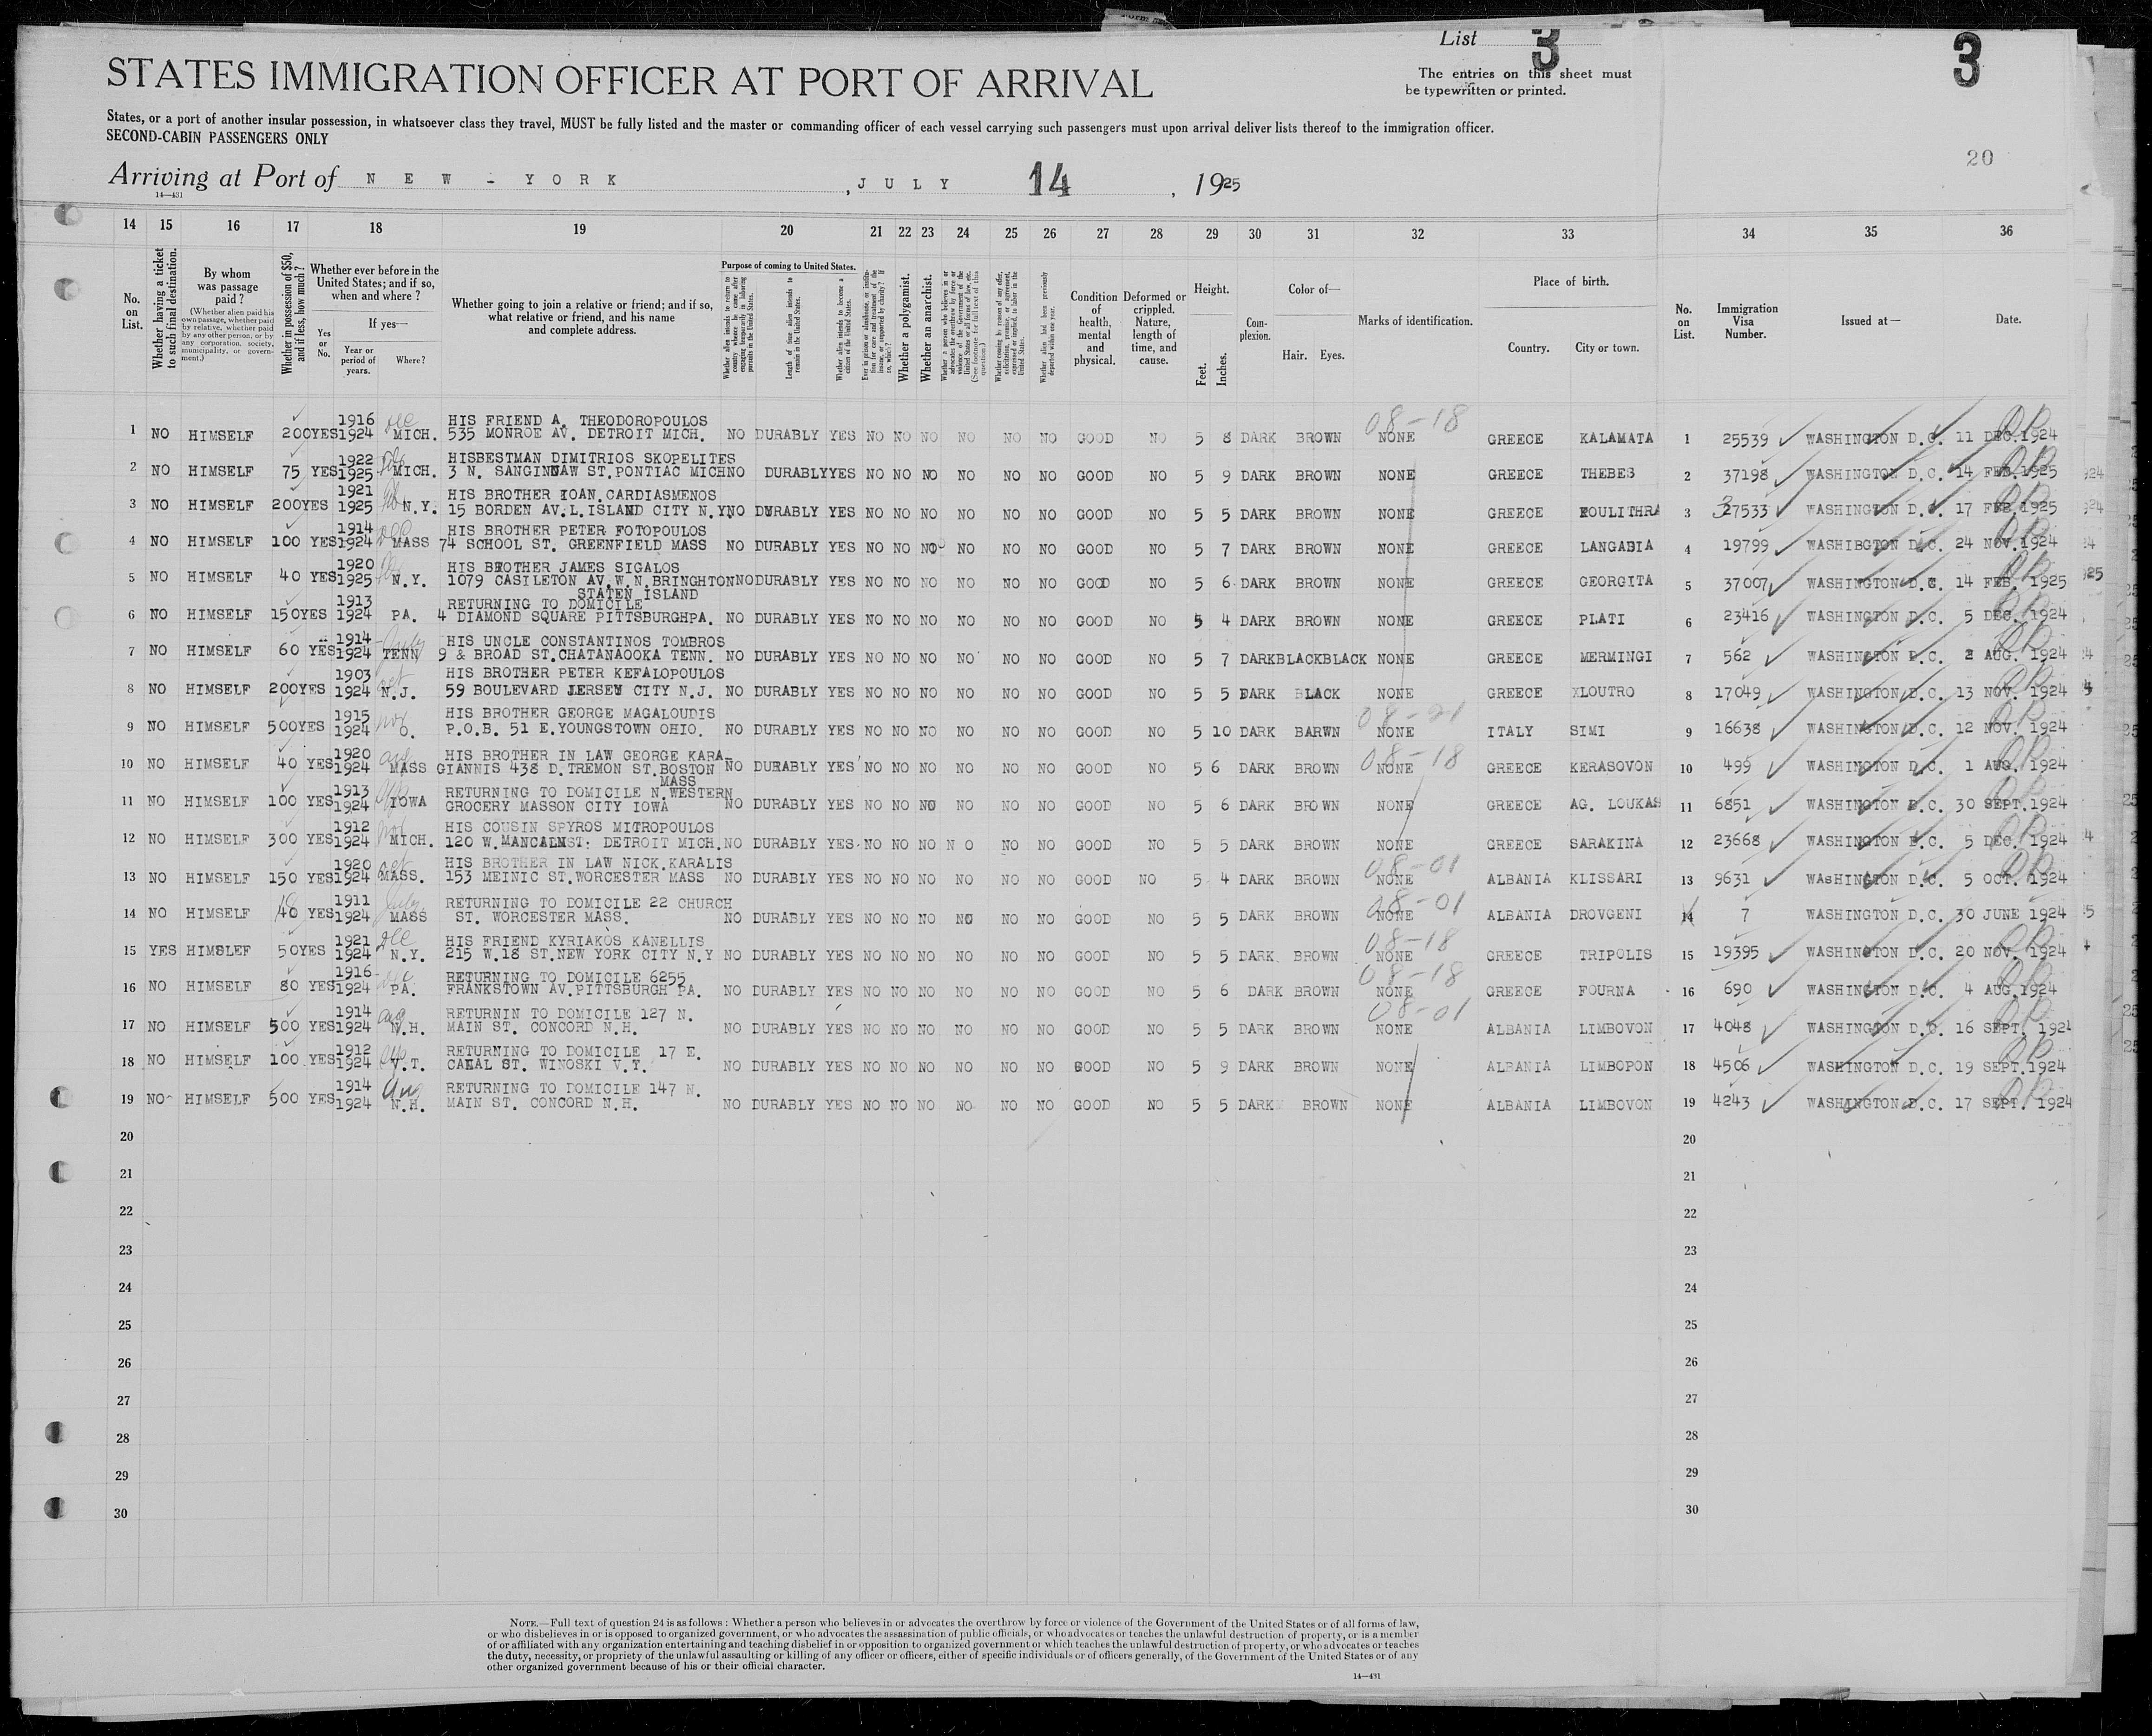 List 3
3
STATES IMMIGRATION OFFICER AT PORT OF ARRIVAL
The entries on this sheet must
be typewritten or printed.
States, or a port of another insular possession, in whatsoever class they travel, MUST be fully listed and the master or commanding officer of each vessel carrying such passengers must upon arrival deliver lists thereof to the immigration officer.
SECOND-CABIN PASSENGERS ONLY
20
Arriving at Port of NEW-YORK, JULY 14, 1925
14—431
14 15 16 17 18 19 20 21 22 23 24 25 26 27 28 29 30 31 32 33 34 35 36
No. on List.
Whether having a ticket to such final destination.
By whom was passage paid?
(Whether alien paid his own passage, whether paid by relative, whether paid by any other person, or by any corporation, society, municipality, or government.)
Whether in possession of $50, and if less, how much?
Whether ever before in the United States; and if so, when and where?
Yes or No.
If yes—
Year or period of years.
Where?
Whether going to join a relative or friend; and if so, what relative or friend, and his name and complete address.
Purpose of coming to United States.
Whether alien intends to return to country whence he came after engaging temporarily in laboring pursuits in the United States.
Length of time alien intends to remain in the United States.
Whether alien intends to become a citizen of the United States.
Ever in prison or almshouse, or institution for care and treatment of the insane, or supported by charity? If so, which?
Whether a polygamist.
Whether an anarchist.
Whether a person who believes in or advocates the overthrow by force or violence of the Government of the United States or all forms of law, etc. (See footnote for full text of this question.)
Whether coming by reason of any offer, solicitation, promise, or agreement, expressed or implied, to labor in the United States.
Whether alien had been previously deported within one year.
Condition of health, mental and physical.
Deformed or crippled. Nature, length of time, and cause.
Height.
Feet. Inches.
Complexion.
Color of—
Hair. Eyes.
Marks of identification.
Place of birth.
Country. City or town.
No. on List.
Immigration Visa Number.
Issued at—
Date.
1916 Dec HIS FRIEND A. THEODOROPOULOS 08-18
1 NO HIMSELF 200YES1924 MICH. 535 MONROE AV. DETROIT MICH. NO DURABLY YES NO NO NO NO NO NO GOOD NO 5 8 DARK BROWN NONE GREECE KALAMATA 1 25539 WASHINGTON D.C. 11 DEC.1924
1922 HISBESTMAN DIMITRIOS SKOPELITES
2 NO HIMSELF 75 YES1925 MICH. 3 N. SANGINNAW ST.PONTIAC MICHNO DURABLYYES NO NO NO NO NO NO GOOD NO 5 9 DARK BROWN NONE GREECE THEBES 2 37198 WASHINGTON D.C. 14 FEB.1925
1921 HIS BROTHER IOAN.CARDIASMENOS
3 NO HIMSELF 200YES 1925 N.Y. 15 BORDEN AV.L.ISLAND CITY N.YNO DURABLY YES NO NO NO NO NO NO GOOD NO 5 5 DARK BROWN NONE GREECE FOULITHRA 3 37533 WASHINGTON D.C. 17 FEB.1925
1914 HIS BROTHER PETER FOTOPOULOS
4 NO HIMSELF 100 YES1924 MASS 74 SCHOOL ST. GREENFIELD MASS NO DURABLY YES NO NO NO NO NO NO GOOD NO 5 7 DARK BROWN NONE GREECE LANGADIA 4 19799 WASHIBGTON D.C. 24 NOV.1924
1920 HIS BROTHER JAMES SIGALOS
5 NO HIMSELF 40 YES1925 N.Y. 1079 CASILETON AV.W.N.BRINGHTONNODURABLY YES NO NO NO NO NO NO GOOD NO 5 6 DARK BROWN NONE GREECE GEORGITA 5 37007 WASHINGTON D.C. 14 FEB. 1925
STATEN ISLAND
1913 RETURNING TO DOMICILE
6 NO HIMSELF 150YES 1924 PA. 4 DIAMOND SQUARE PITTSBURGHPA. NO DURABLY YES NO NO NO NO NO NO GOOD NO 5 4 DARK BROWN NONE GREECE PLATI 6 23416 WASHINGTON D.C. 5 DEC. 1924
1914 July HIS UNCLE CONSTANTINOS TOMBROS
7 NO HIMSELF 60 YES1924 TENN 9 & BROAD ST.CHATANAOOKA TENN. NO DURABLY YES NO NO NO NO NO NO GOOD NO 5 7 DARKBLACKBLACK NONE GREECE MERMINGI 7 562 WASHINGTON D.C. 2 AUG. 1924
1903 Oct HIS BROTHER PETER KEFALOPOULOS
8 NO HIMSELF 200YES 1924 N.J. 59 BOULEVARD JERSEY CITY N.J. NO DURABLY YES NO NO NO NO NO NO GOOD NO 5 5 DARK BLACK NONE GREECE XLOUTRO 8 17049 WASHINGTON D.C. 13 NOV. 1924
1915 Nov HIS BROTHER GEORGE MAGALOUDIS 08-21
9 NO HIMSELF 500YES 1924 O. P.O.B. 51 E.YOUNGSTOWN OHIO. NO DURABLY YES NO NO NO NO NO NO GOOD NO 5 10 DARK BARWN NONE ITALY SIMI 9 16638 WASHINGTON D.C. 12 NOV. 1924
1920 Aug HIS BROTHER IN LAW GEORGE KARA- 08-18
10 NO HIMSELF 40 YES1924 MASS GIANNIS 438 D.TREMON ST.BOSTON NO DURABLY YES NO NO NO NO NO NO GOOD NO 5 6 DARK BROWN NONE GREECE KERASOVON 10 499 WASHINGTON D.C. 1 AUG. 1924
MASS
1913 RETURNING TO DOMICILE N.WESTERN
11 NO HIMSELF 100 YES1924 IOWA GROCERY MASSON CITY IOWA NO DURABLY YES NO NO NO NO NO NO GOOD NO 5 6 DARK BROWN NONE GREECE AG. LOUKAS 11 6851 WASHINGTON D.C. 30 SEPT.1924
1912 Nov HIS COUSIN SPYROS MITROPOULOS
12 NO HIMSELF 300 YES1924 MICH. 120 W.MANCALMST. DETROIT MICH.NO DURABLY YES NO NO NO N O NO NO GOOD NO 5 5 DARK BROWN NONE GREECE SARAKINA 12 23668 WASHINGTON D.C. 5 DEC. 1924
1920 Oct HIS BROTHER IN LAW NICK.KARALIS 08-01
13 NO HIMSELF 150 YES1924 MASS. 153 MEINIC ST.WORCESTER MASS NO DURABLY YES NO NO NO NO NO NO GOOD NO 5 4 DARK BROWN NONE ALBANIA KLISSARI 13 9631 WASHINGTON D.C. 5 OCT. 1924
1911 July RETURNING TO DOMICILE 22 CHURCH 08-01
14 NO HIMSELF 40 YES1924 MASS ST. WORCESTER MASS. NO DURABLY YES NO NO NO NO NO NO GOOD NO 5 5 DARK BROWN NONE ALBANIA DROVGENI 14 7 WASHINGTON D.C. 30 JUNE 1924
1921 Dec HIS FRIEND KYRIAKOS KANELLIS 08-18
15 YES HIMSLEF 50YES 1924 N.Y. 215 W.18 ST.NEW YORK CITY N.Y NO DURABLY YES NO NO NO NO NO NO GOOD NO 5 5 DARK BROWN NONE GREECE TRIPOLIS 15 19395 WASHINGTON D.C. 20 NOV. 1924
1916 RETURNING TO DOMICILE 6255 08-18
16 NO HIMSELF 80 YES1924 PA. FRANKSTOWN AV.PITTSBURGH PA. NO DURABLY YES NO NO NO NO NO NO GOOD NO 5 6 DARK BROWN NONE GREECE FOURNA 16 690 WASHINGTON D.C. 4 AUG.1924
1914 Aug RETURNIN TO DOMICILE 127 N. 08-01
17 NO HIMSELF 500 YES1924 N.H. MAIN ST. CONCORD N.H. NO DURABLY YES NO NO NO NO NO NO GOOD NO 5 5 DARK BROWN NONE ALBANIA LIMBOVON 17 4048 WASHINGTON D.C. 16 SEPT. 1924
1912 RETURNING TO DOMICILE 17 E.
18 NO HIMSELF 100 YES1924 V.T. CAKAL ST. WINOSKI V.T. NO DURABLY YES NO NO NO NO NO NO GOOD NO 5 9 DARK BROWN NONE ALBANIA LIMBOPON 18 4506 WASHINGTON D.C. 19 SEPT.1924
1914 Aug RETURNING TO DOMICILE 147 N.
19 NO HIMSELF 500 YES1924 N.H. MAIN ST. CONCORD N.H. NO DURABLY YES NO NO NO NO NO NO GOOD NO 5 5 DARK BROWN NONE ALBANIA LIMBOVON 19 4243 WASHINGTON D.C. 17 SEPT. 1924
20 20
21 21
22 22
23 23
24 24
25 25
26 26
27 27
28 28
29 29
30 30
NOTE.—Full text of question 24 is as follows: Whether a person who believes in or advocates the overthrow by force or violence of the Government of the United States or of all forms of law,
or who disbelieves in or is opposed to organized government, or who advocates the assassination of public officials, or who advocates or teaches the unlawful destruction of property, or is a member
of or affiliated with any organization entertaining and teaching disbelief in or opposition to organized government or which teaches the unlawful destruction of property, or who advocates or teaches
the duty, necessity, or propriety of the unlawful assaulting or killing of any officer or officers, either of specific individuals or of officers generally, of the Government of the United States or of any
other organized government because of his or their official character.
14—431